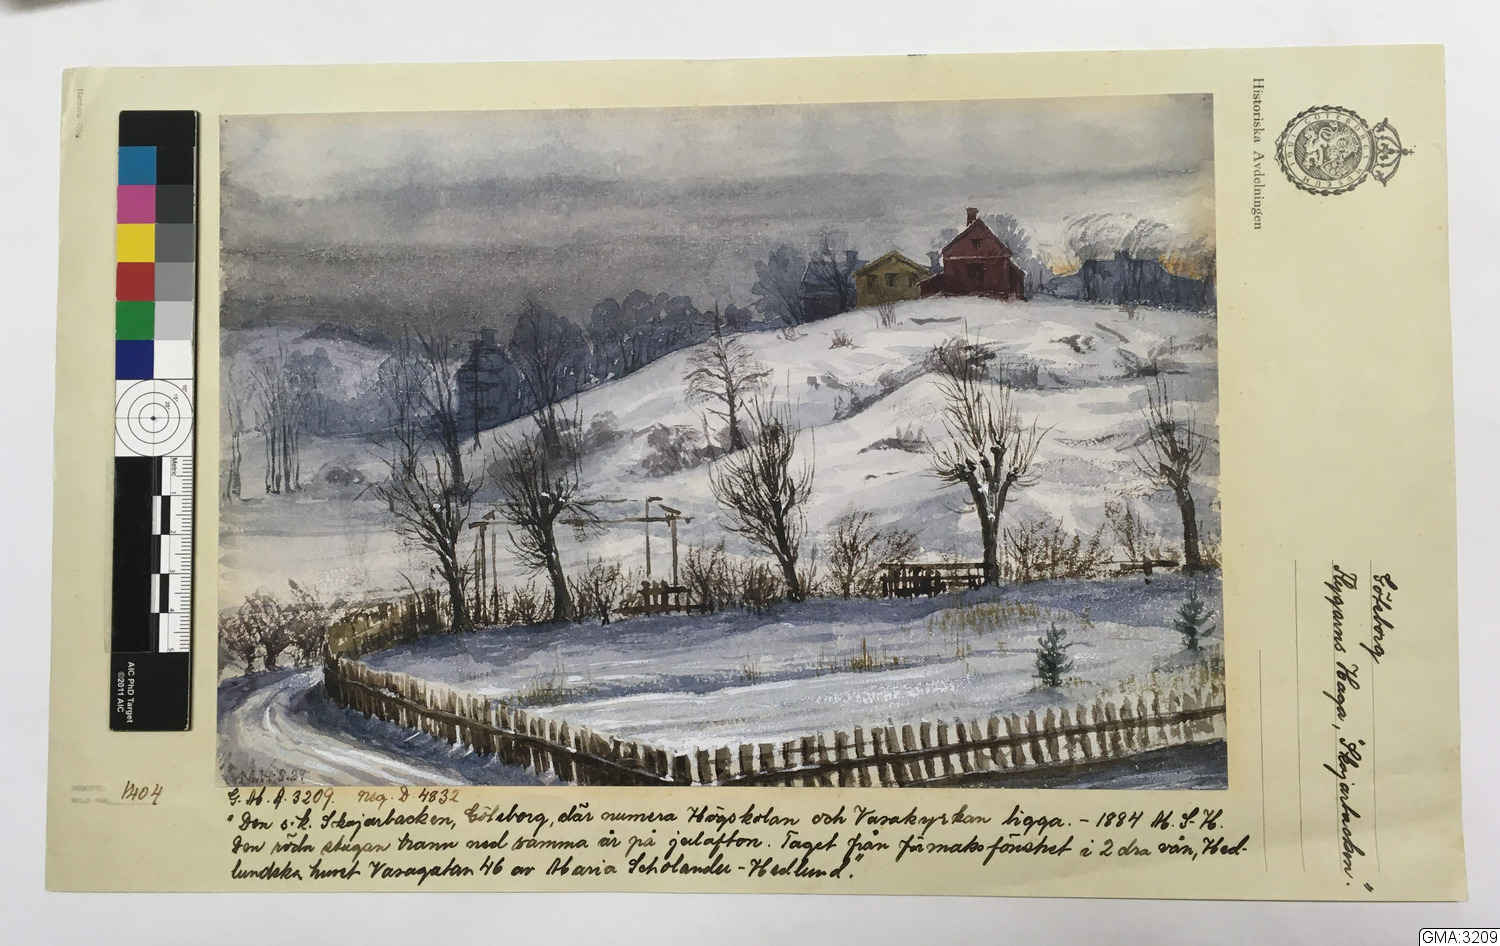 Historiska Avdelningen
GÖTEBORGS MUSEUM
Göteborg
Skojarbacken."
AIC PhD Target
©2011 AIC
Metric
1404
M.H-S. 84
G. M. A. 3209. neg. D 4832
"Den s.k. Skojarbacken, Göteborg, där numera Högskolan och Vasakyrkan ligga. - 1884 M. S-H.
Den röda stugan brann ned samma år på julafton. Taget från förmaksfönstret i 2 dra vån, Hed-
lundska huset Vasagatan 46 av Maria Scholander-Hedlund."
GMA:3209